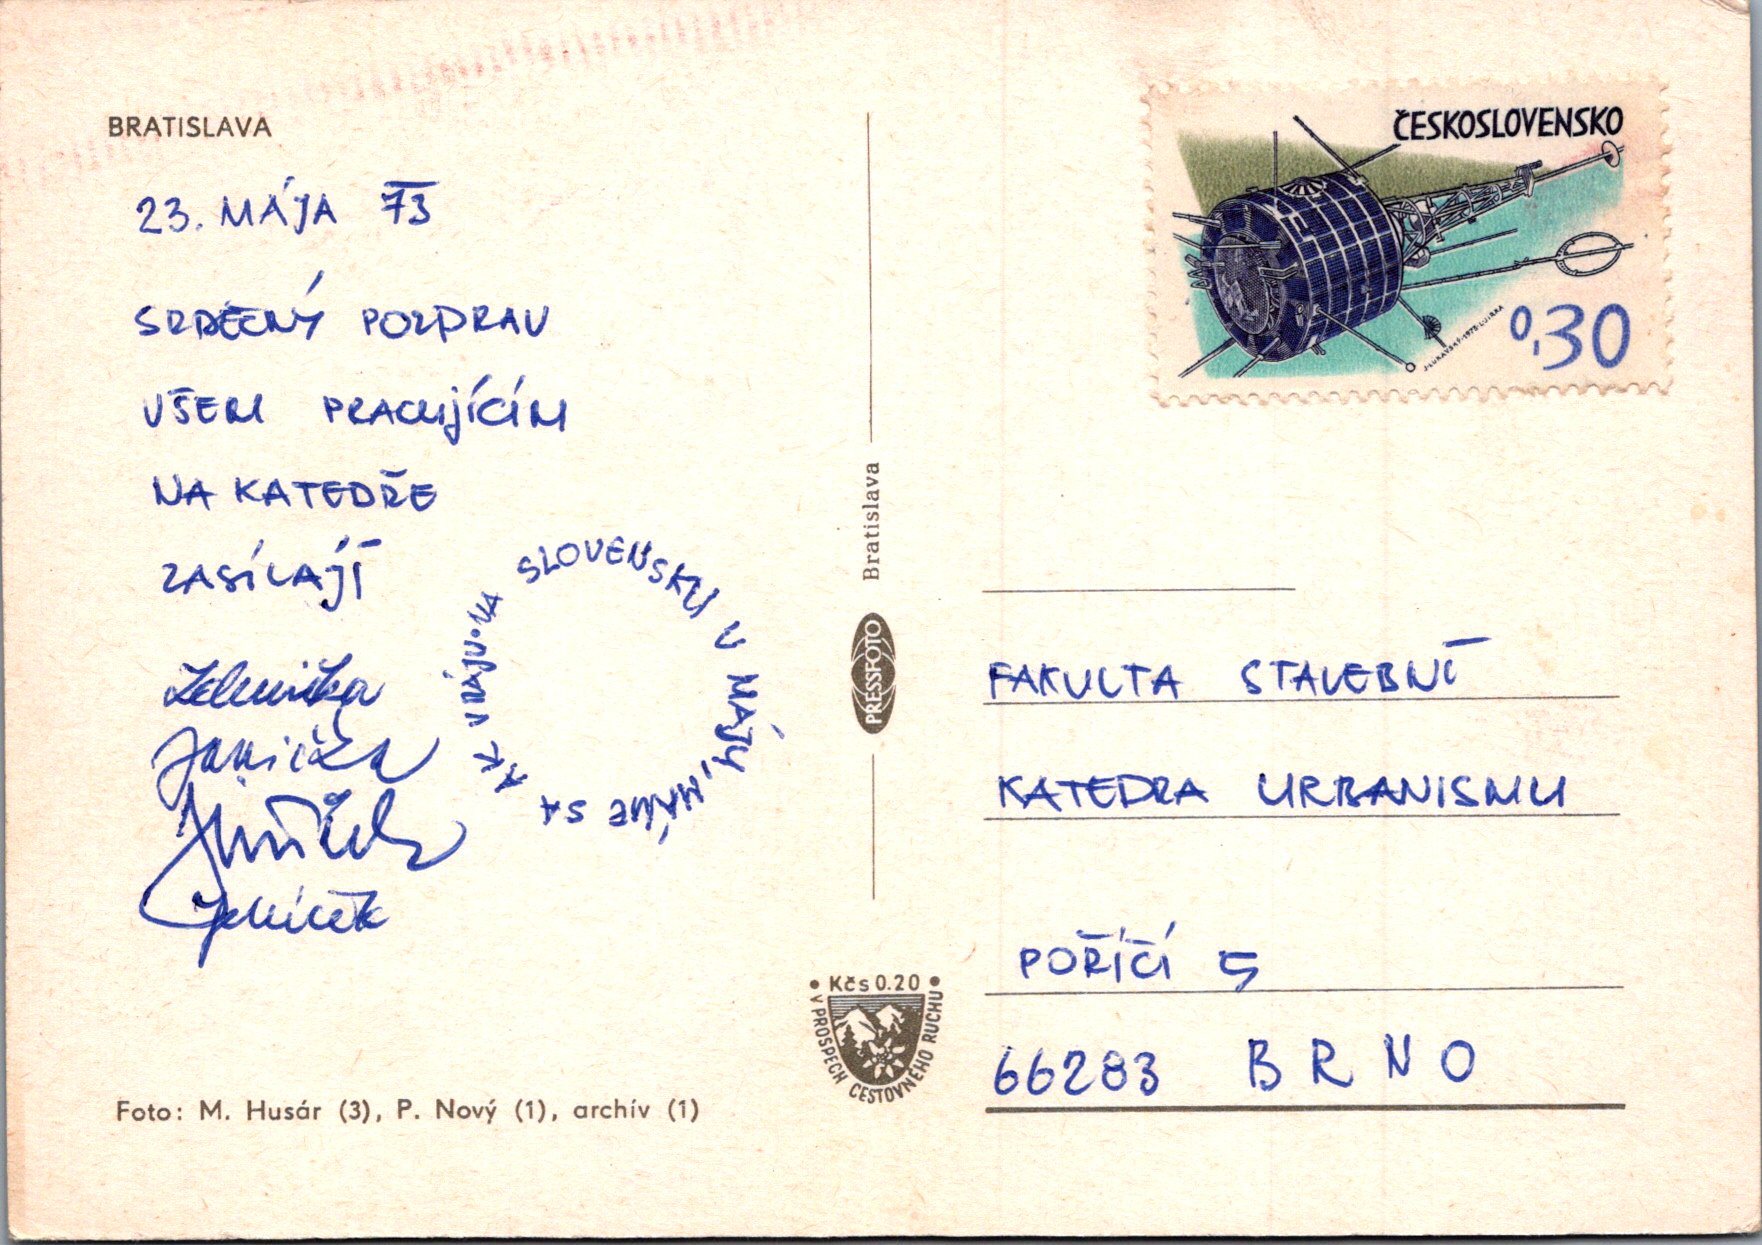 BRATISLAVA
23. MÁJA 73
SRDEČNÝ POZDRAV
VŠEM PRACUJÍCÍM
NA KATEDŘE
ZASÍLAJÍ
SLOVENSKU V MÁJY, MÁME SA AK V RÁJU • NA
Janička
Jeníček
Foto: M. Husár (3), P. Nový (1), archív (1)
Bratislava
PRESSFOTO
• Kčs 0.20 •
V PROSPECH CESTOVNÉHO RUCHU
ČESKOSLOVENSKO
0,30
FAKULTA STAVEBNÍ
KATEDRA URBANISMU
POŘÍČÍ 5
66283 BRNO